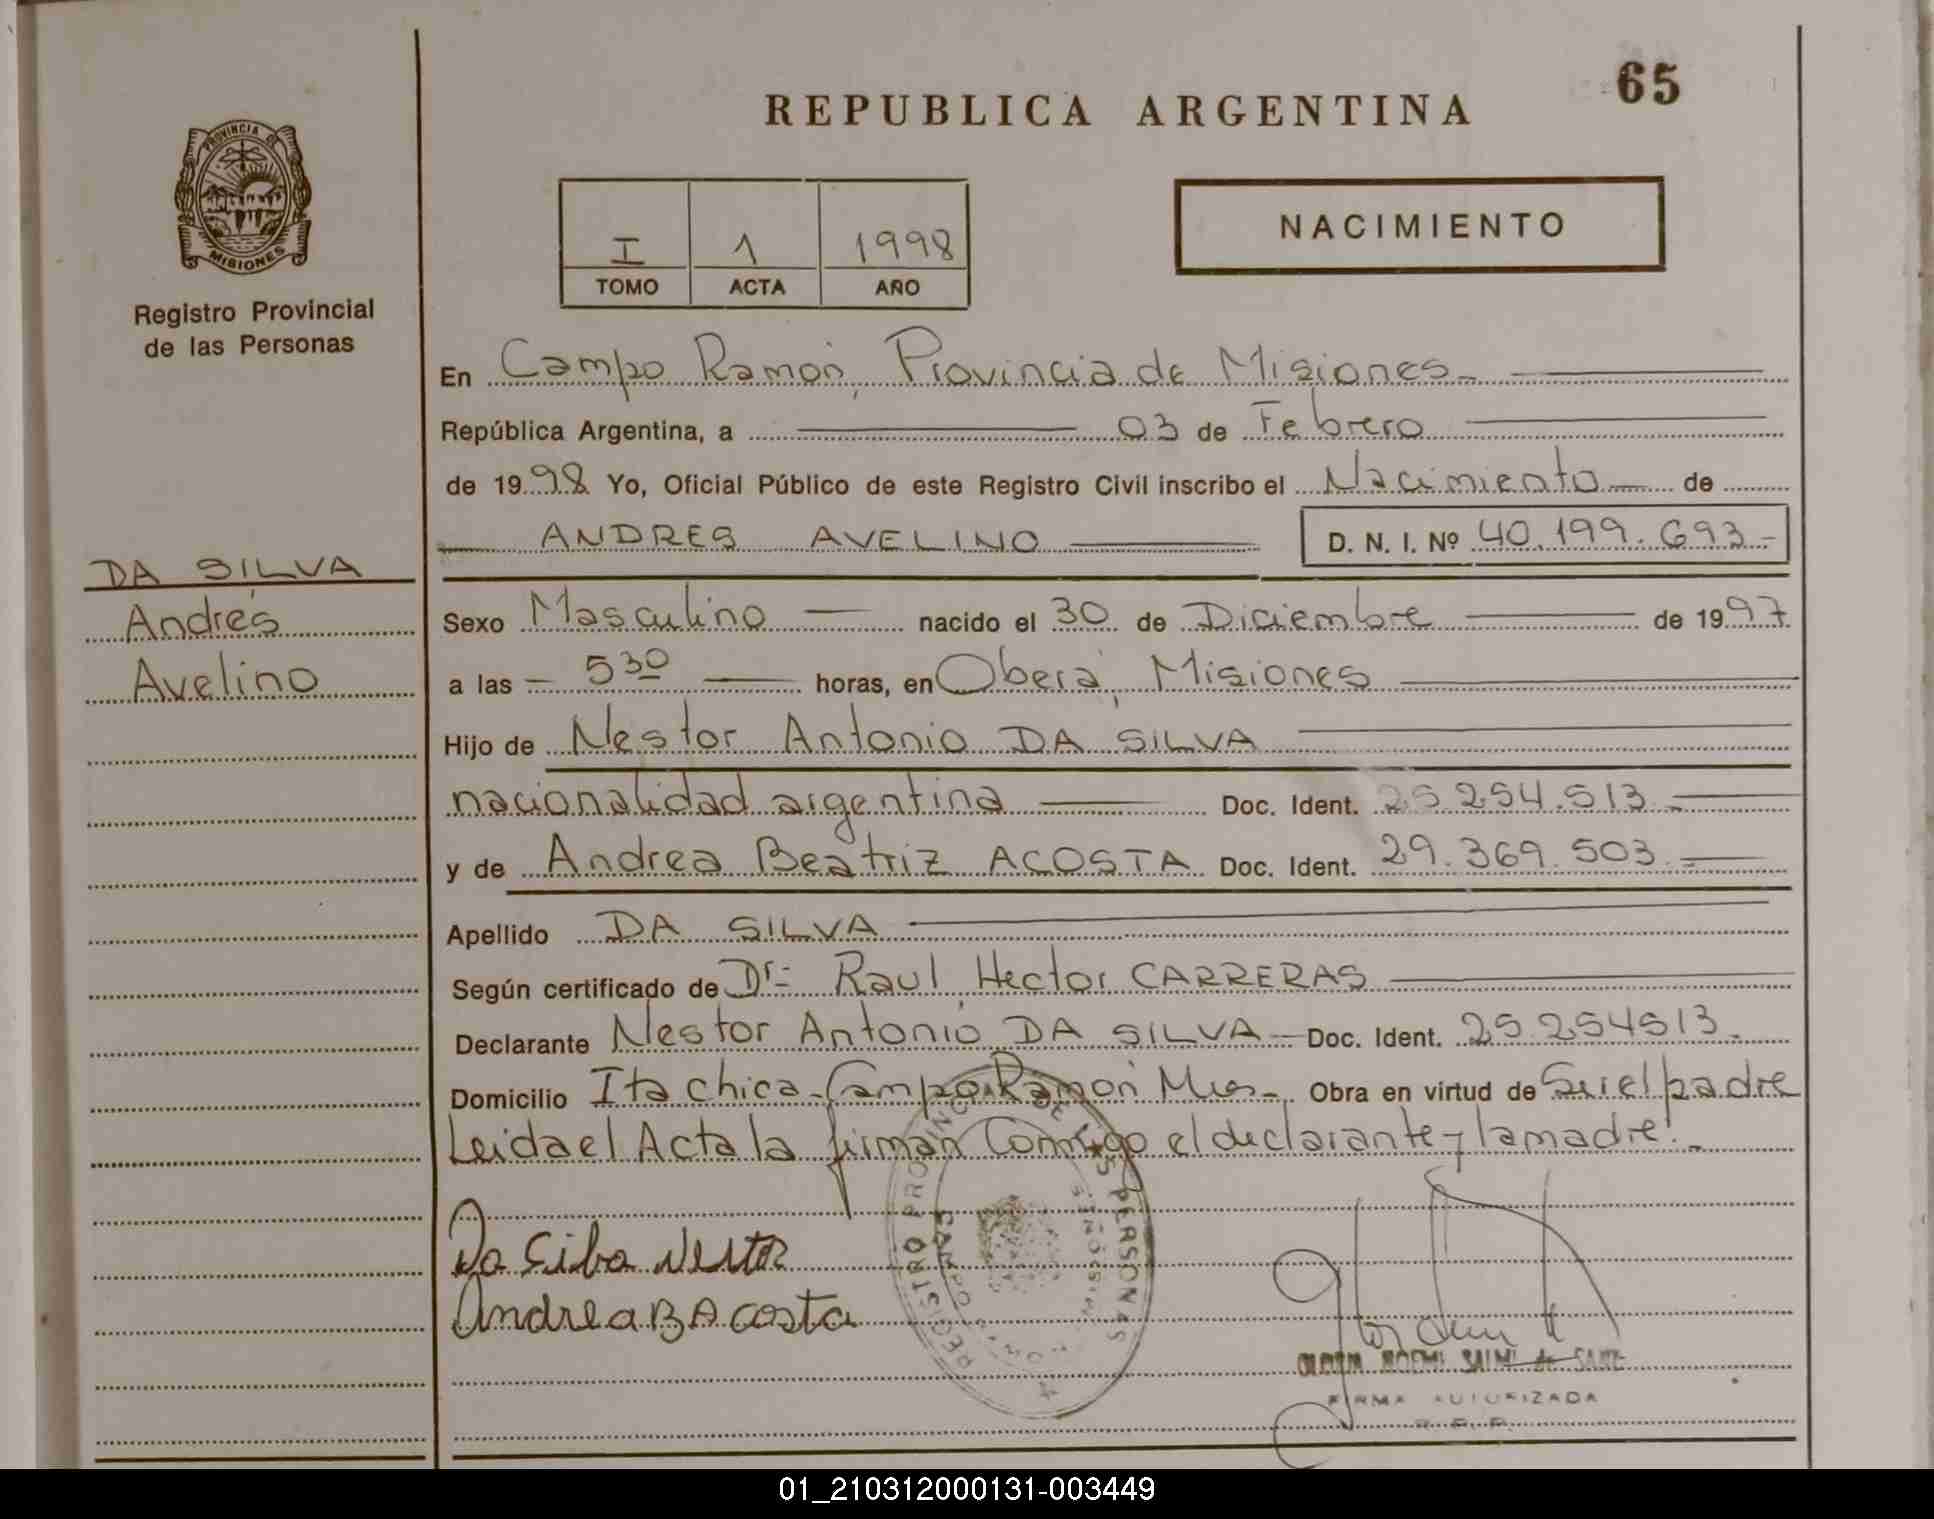 65
REPUBLICA ARGENTINA
PROVINCIA DE
MISIONES
Registro Provincial
de las Personas
I 1 1998
TOMO ACTA AÑO
NACIMIENTO
En Campo Ramón, Provincia de Misiones
República Argentina, a 03 de Febrero
de 1998 Yo, Oficial Público de este Registro Civil inscribo el Nacimiento de
ANDRES AVELINO D. N. I. Nº 40.199.693
DA SILVA
Andrés
Avelino
Sexo Masculino nacido el 30 de Diciembre de 1997
a las 5 30 horas, en Oberá, Misiones
Hijo de Nestor Antonio DA SILVA
nacionalidad argentina Doc. Ident. 25.254.513
y de Andrea Beatriz ACOSTA Doc. Ident. 29.369.503
Apellido DA SILVA
Según certificado de Dr. Raul Hector CARRERAS
Declarante Nestor Antonio DA SILVA Doc. Ident. 25.254513
Domicilio Ita Chica - Campo Ramón Mnes Obra en virtud de Ser el padre
Leida el Acta la firman Conmigo el declarante y la madre.
Da Silva Nestor
Andrea B Acosta
REGISTRO PROVINCIAL DE LAS PERSONAS
CAMPO RAMON
MISIONES
FIRMA AUTORIZADA
R. P. P.
01_210312000131-003449